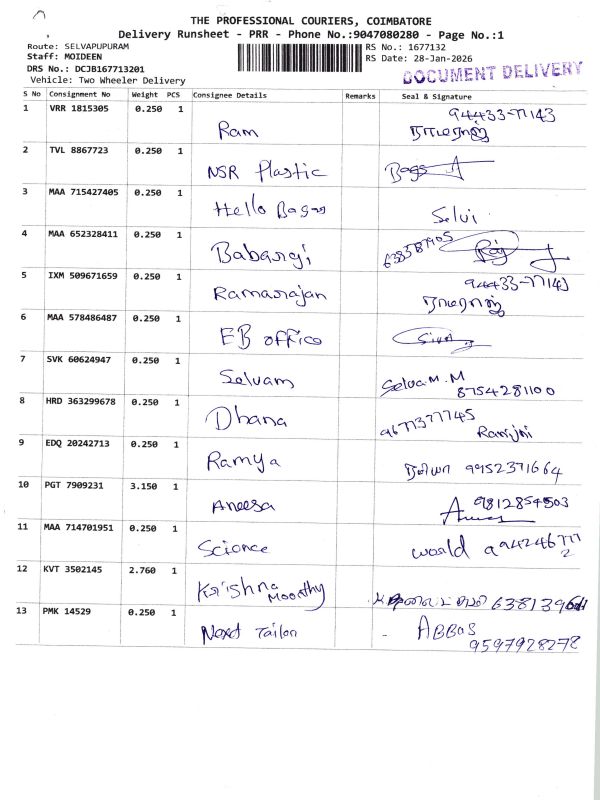 THE PROFESSIONAL COURIERS, COIMBATORE
Delivery Runsheet - PRR - Phone No.:9047080280 - Page No.:1
Route: SELVAPUPURAM
RS No.: 1677132
Staff: MOIDEEN
RS Date: 28-Jan-2026
DRS No.: DCJB167713201
DOCUMENT DELIVERY
Vehicle: Two Wheeler Delivery
S No Consignment No Weight PCS Consignee Details Remarks Seal & Signature
1 VRR 1815305 0.250 1 Ram 94433-77143
2 TVL 8867723 0.250 1 NSR Plastic
3 MAA 715427405 0.250 1 Hello Bags Selvi
4 MAA 652328411 0.250 1 Babangi Raj
5 IXM 509671659 0.250 1 Ramarajan 94433-77143
6 MAA 578486487 0.250 1 EB office Siva
7 SVK 60624947 0.250 1 Selvam Selva M. M
8754281100
8 HRD 363299678 0.250 1 Dhana 9677377745
Ranjni
9 EDQ 20242713 0.250 1 Ramya ரம்யா 9952371664
10 PGT 7909231 3.150 1 Aneesa 9812854503
11 MAA 714701951 0.250 1 Science world
12 KVT 3502145 2.760 1 Krishna Moorthy
13 PMK 14529 0.250 1 Next Tailor ABBAS
9597928278